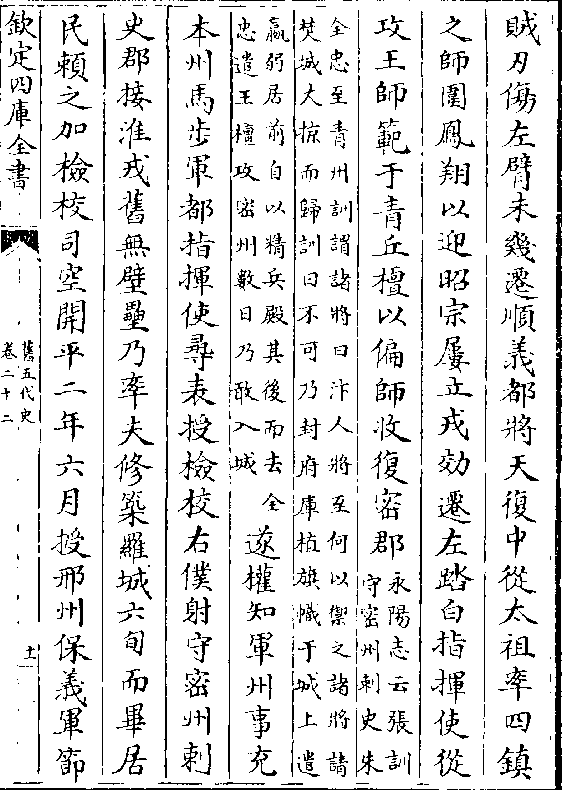 賊刃傷左臂未幾遷順義都將天復中從太祖率四鎮
之師圍鳳翔以迎昭宗屢立戎効遷左踏白指揮使從
攻王師範于青丘檀以偏師收復密郡
永陽志云張訓
守密州刺史朱
全忠至青州訓謂諸將曰汴人將至何以禦之諸將請
焚城大掠而歸訓曰不可乃封府庫植旗幟于城上遣
羸弱居前自以精兵殿其後而去全
忠遣王檀攻密州數日乃敢入城
遂權知軍州事充
本州馬步軍都指揮使尋表授檢校右僕射守密州刺
史郡接淮戎舊無壁壘乃率夫修築羅城六旬而畢居
民賴之加檢校司空開平二年六月授邢州保義軍節
欽定四庫全書
舊五代史
卷二十二
十一